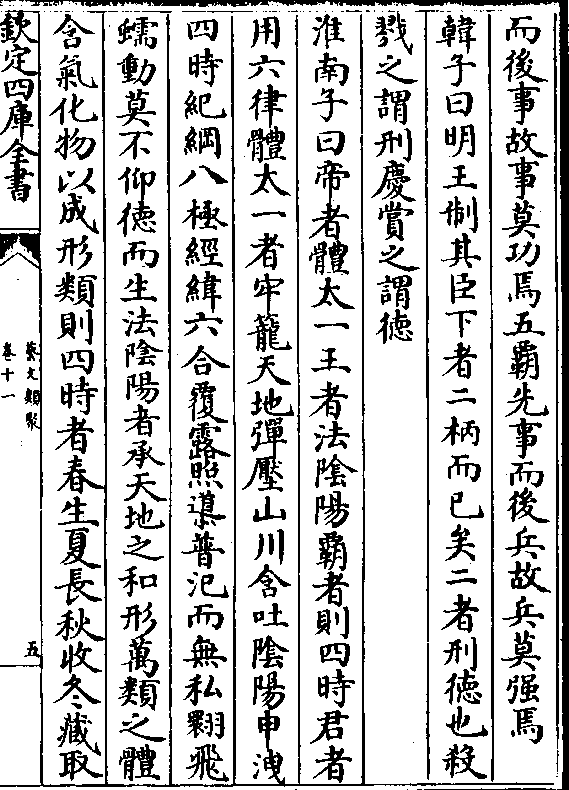 而後事故事莫功焉五霸先事而後兵故兵莫强焉
韓子曰明王制其臣下者二柄而已矣二者刑徳也殺
戮之謂刑慶賞之謂徳
淮南子曰帝者體太一王者法陰陽霸者則四時君者
用六律體太一者牢籠天地彈壓山川含吐陰陽申洩
四時紀綱八極經緯六合覆露照導普汜而無私翾飛
蠕動莫不仰徳而生法陰陽者承天地之和形萬類之體
含氣化物以成形類則四時者春生夏長秋收冬藏取
欽定四庫全書
藝文類聚
卷十一
五